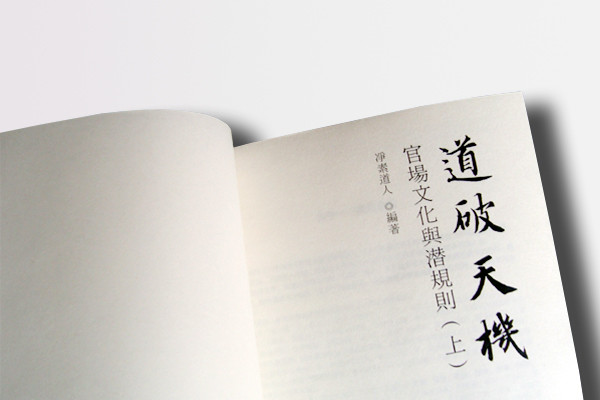 道破天機
官場文化與潛規則(上)
淨素道人◎編著